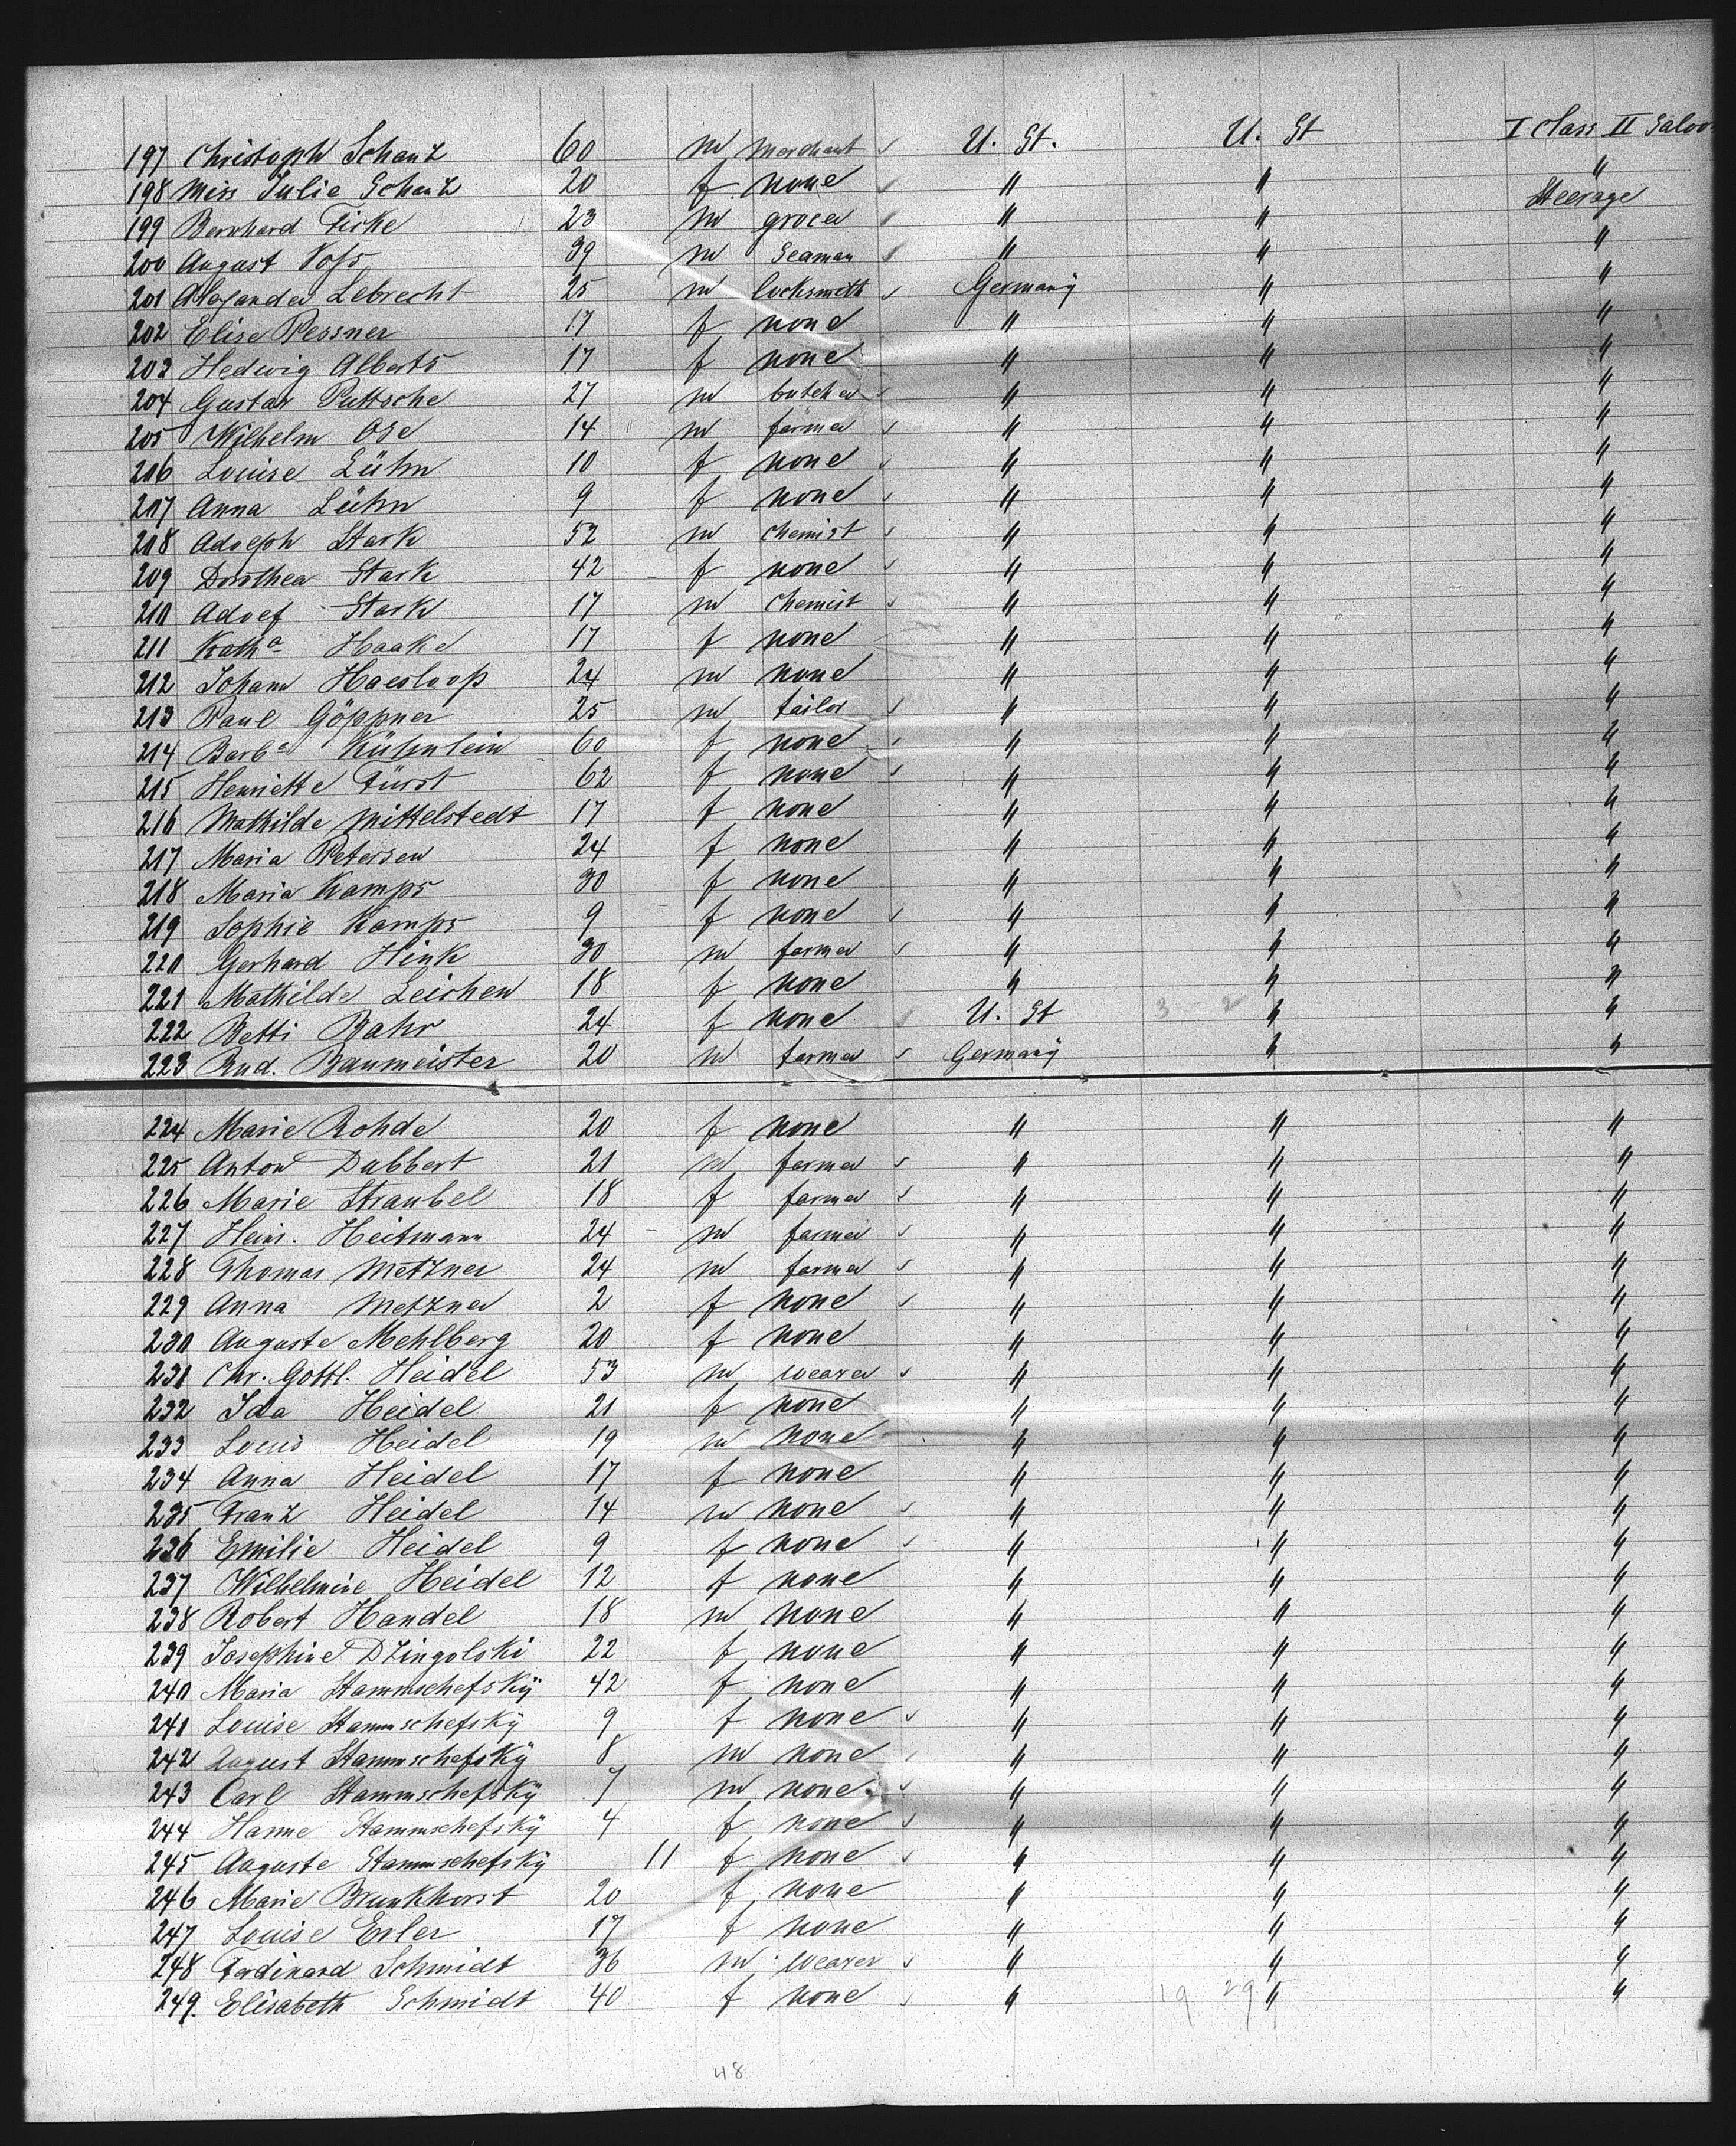 197 Christoph Schanz 60 m merchant U. St. U. St I Class II Saloon
198 Miss Julie Schanz 20 f none " " "
199 Bernhard Ficke 23 m grocer " " Steerage
200 August Voss 39 m Seaman " " "
201 Alexander Lebrecht 25 m locksmith Germany " "
202 Elise Pessner 17 f none " " "
203 Hedwig Alberts 17 f none " " "
204 Gustav Puttsche 27 m butcher " " "
205 Wilhelm Ose 14 m farmer " " "
206 Louise Lühn 10 f none " " "
207 Anna Lühn 9 f none " " "
208 Adolph Stark 52 m chemist " " "
209 Dorothea Stark 42 f none " " "
210 Adolf Stark 17 m chemist " " "
211 Katha Haake 17 f none " " "
212 Johann Haesloop 24 m none " " "
213 Paul Göppner 25 m tailor " " "
214 Barba Kühnlein 60 f none " " "
215 Henriette Fürst 62 f none " " "
216 Mathilde Mittelstedt 17 f none " " "
217 Maria Petersen 24 f none " " "
218 Maria Kamps 30 f none " " "
219 Sophie Kamps 9 f none " " "
220 Gerhard Hink 30 m farmer " " "
221 Mathilde Leichen 18 f none " " "
222 Betti Bahr 24 f none U. St 3 2 " "
223 Rud. Baumeister 20 m farmer Germany " "
224 Marie Rohde 20 f none " " "
225 Anton Dubbert 21 m farmer " " "
226 Marie Straubel 18 f farmer " " "
227 Heinr. Heitmann 24 m farmer " " "
228 Thomas Metzner 24 m farmer " " "
229 Anna Metzner 2 f none " " "
230 Auguste Mehlberg 20 f none " " "
231 Chr. Gottl. Heidel 53 m weaver " " "
232 Ida Heidel 21 f none " " "
233 Louis Heidel 19 m none " " "
234 Anna Heidel 17 f none " " "
235 Franz Heidel 14 m none " " "
236 Emilie Heidel 9 f none " " "
237 Wilhelmine Heidel 12 f none " " "
238 Robert Handel 18 m none " " "
239 Josephine Dzingolski 22 f none " " "
240 Maria Stammschefský 42 f none " " "
241 Louise Stammschefský 9 f none " " "
242 August Stammschefský 8 m none " " "
243 Carl Stammschefský 7 m none " " "
244 Hanne Stammschefský 4 f none " " "
245 Auguste Stammschefský 11 f none " " "
246 Marie Brunkhorst 20 f none " " "
247 Louise Erler 17 f none " " "
248 Ferdinand Schmidt 36 m weaver " " "
249. Elisabeth Schmidt 40 f none " 19 29 " "
48